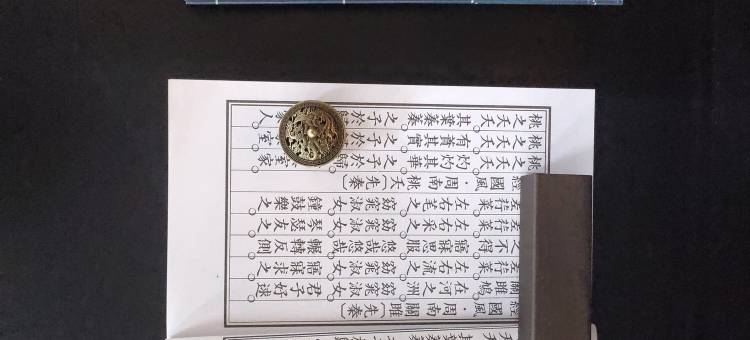 經國風·周南 關雎〔先秦〕
關雎鳩○在河之洲○窈窕淑女○君子好逑
差荇菜○左右流之○窈窕淑女○寤寐求之
之不得○寤寐思服○悠哉悠哉○輾轉反側
差荇菜○左右采之○窈窕淑女○琴瑟友之
差荇菜○左右芼之○窈窕淑女○鐘鼓樂之
經國風·周南 桃夭〔先秦〕
桃之夭夭○灼灼其華○之子於歸 室家
桃之夭夭○有蕡其實○之子於 室
桃之夭夭○其葉蓁蓁○之子於歸 人